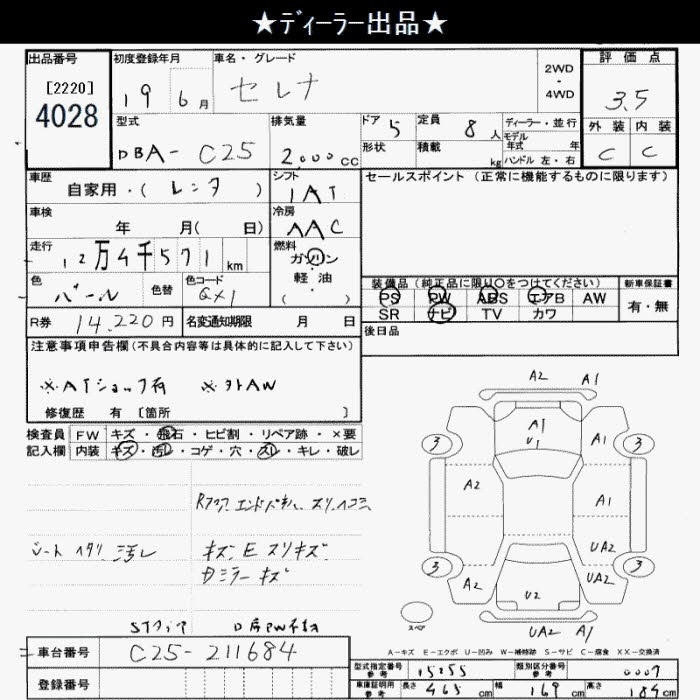 ★ディーラー出品★
出品番号
[2220]
4028
初度登録年月
19 6月
車名・グレード
セレナ
2WD
・
4WD
評価点
3.5
外装 内装
C C
型式
DBA- C25
排気量
2,000cc
ドア 5
形状
定員 8人
積載 kg
ディーラー・並行
モデル
年式 年
ハンドル 左・右
車歴
自家用・(レンタ)
シフト
IAT
セールスポイント(正常に機能するものに限ります)
車検
年 月( 日)
冷房
AAC
走行
12万4千571km
燃料
ガソリン
軽油
( )
色
パール
色替
色コード
QX1
装備品(純正品に限り○をつけてください)
PS PW ABS エアB AW
SR ナビ TV カワ
新車保証書
有・無
R券 14,220円
名変通知期限 月 日
後日品
注意事項申告欄(不具合内容等は具体的に記入して下さい)
※ATショック有 ※外AW
修復歴 有 [箇所 ]
検査員
記入欄
FW キズ・飛石・ヒビ割・リペア跡・×要
内装 キズ・汚レ・コゲ・穴・スレ・キレ・破レ
シート ヘタリ 汚レ
キズ.E スリキズ
キズ
A2 A1
A1
U1
A1
3 3
A2
A1
UA2
3 3
A2
UA2
U2
UA2 A1
スペア
A-キズ E-エクボ U-凹み W-補修跡 S-サビ C-腐食 XX-交換済
車台番号
C25-211684
登録番号
型式指定番号
参考
15255
類別区分番号
参考
0007
車庫証明用
参考
長さ 465cm
幅 169cm
高さ 184cm